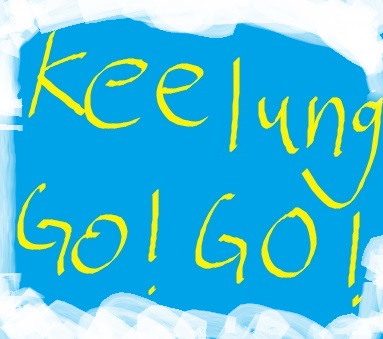 Keelung
Go! GO!